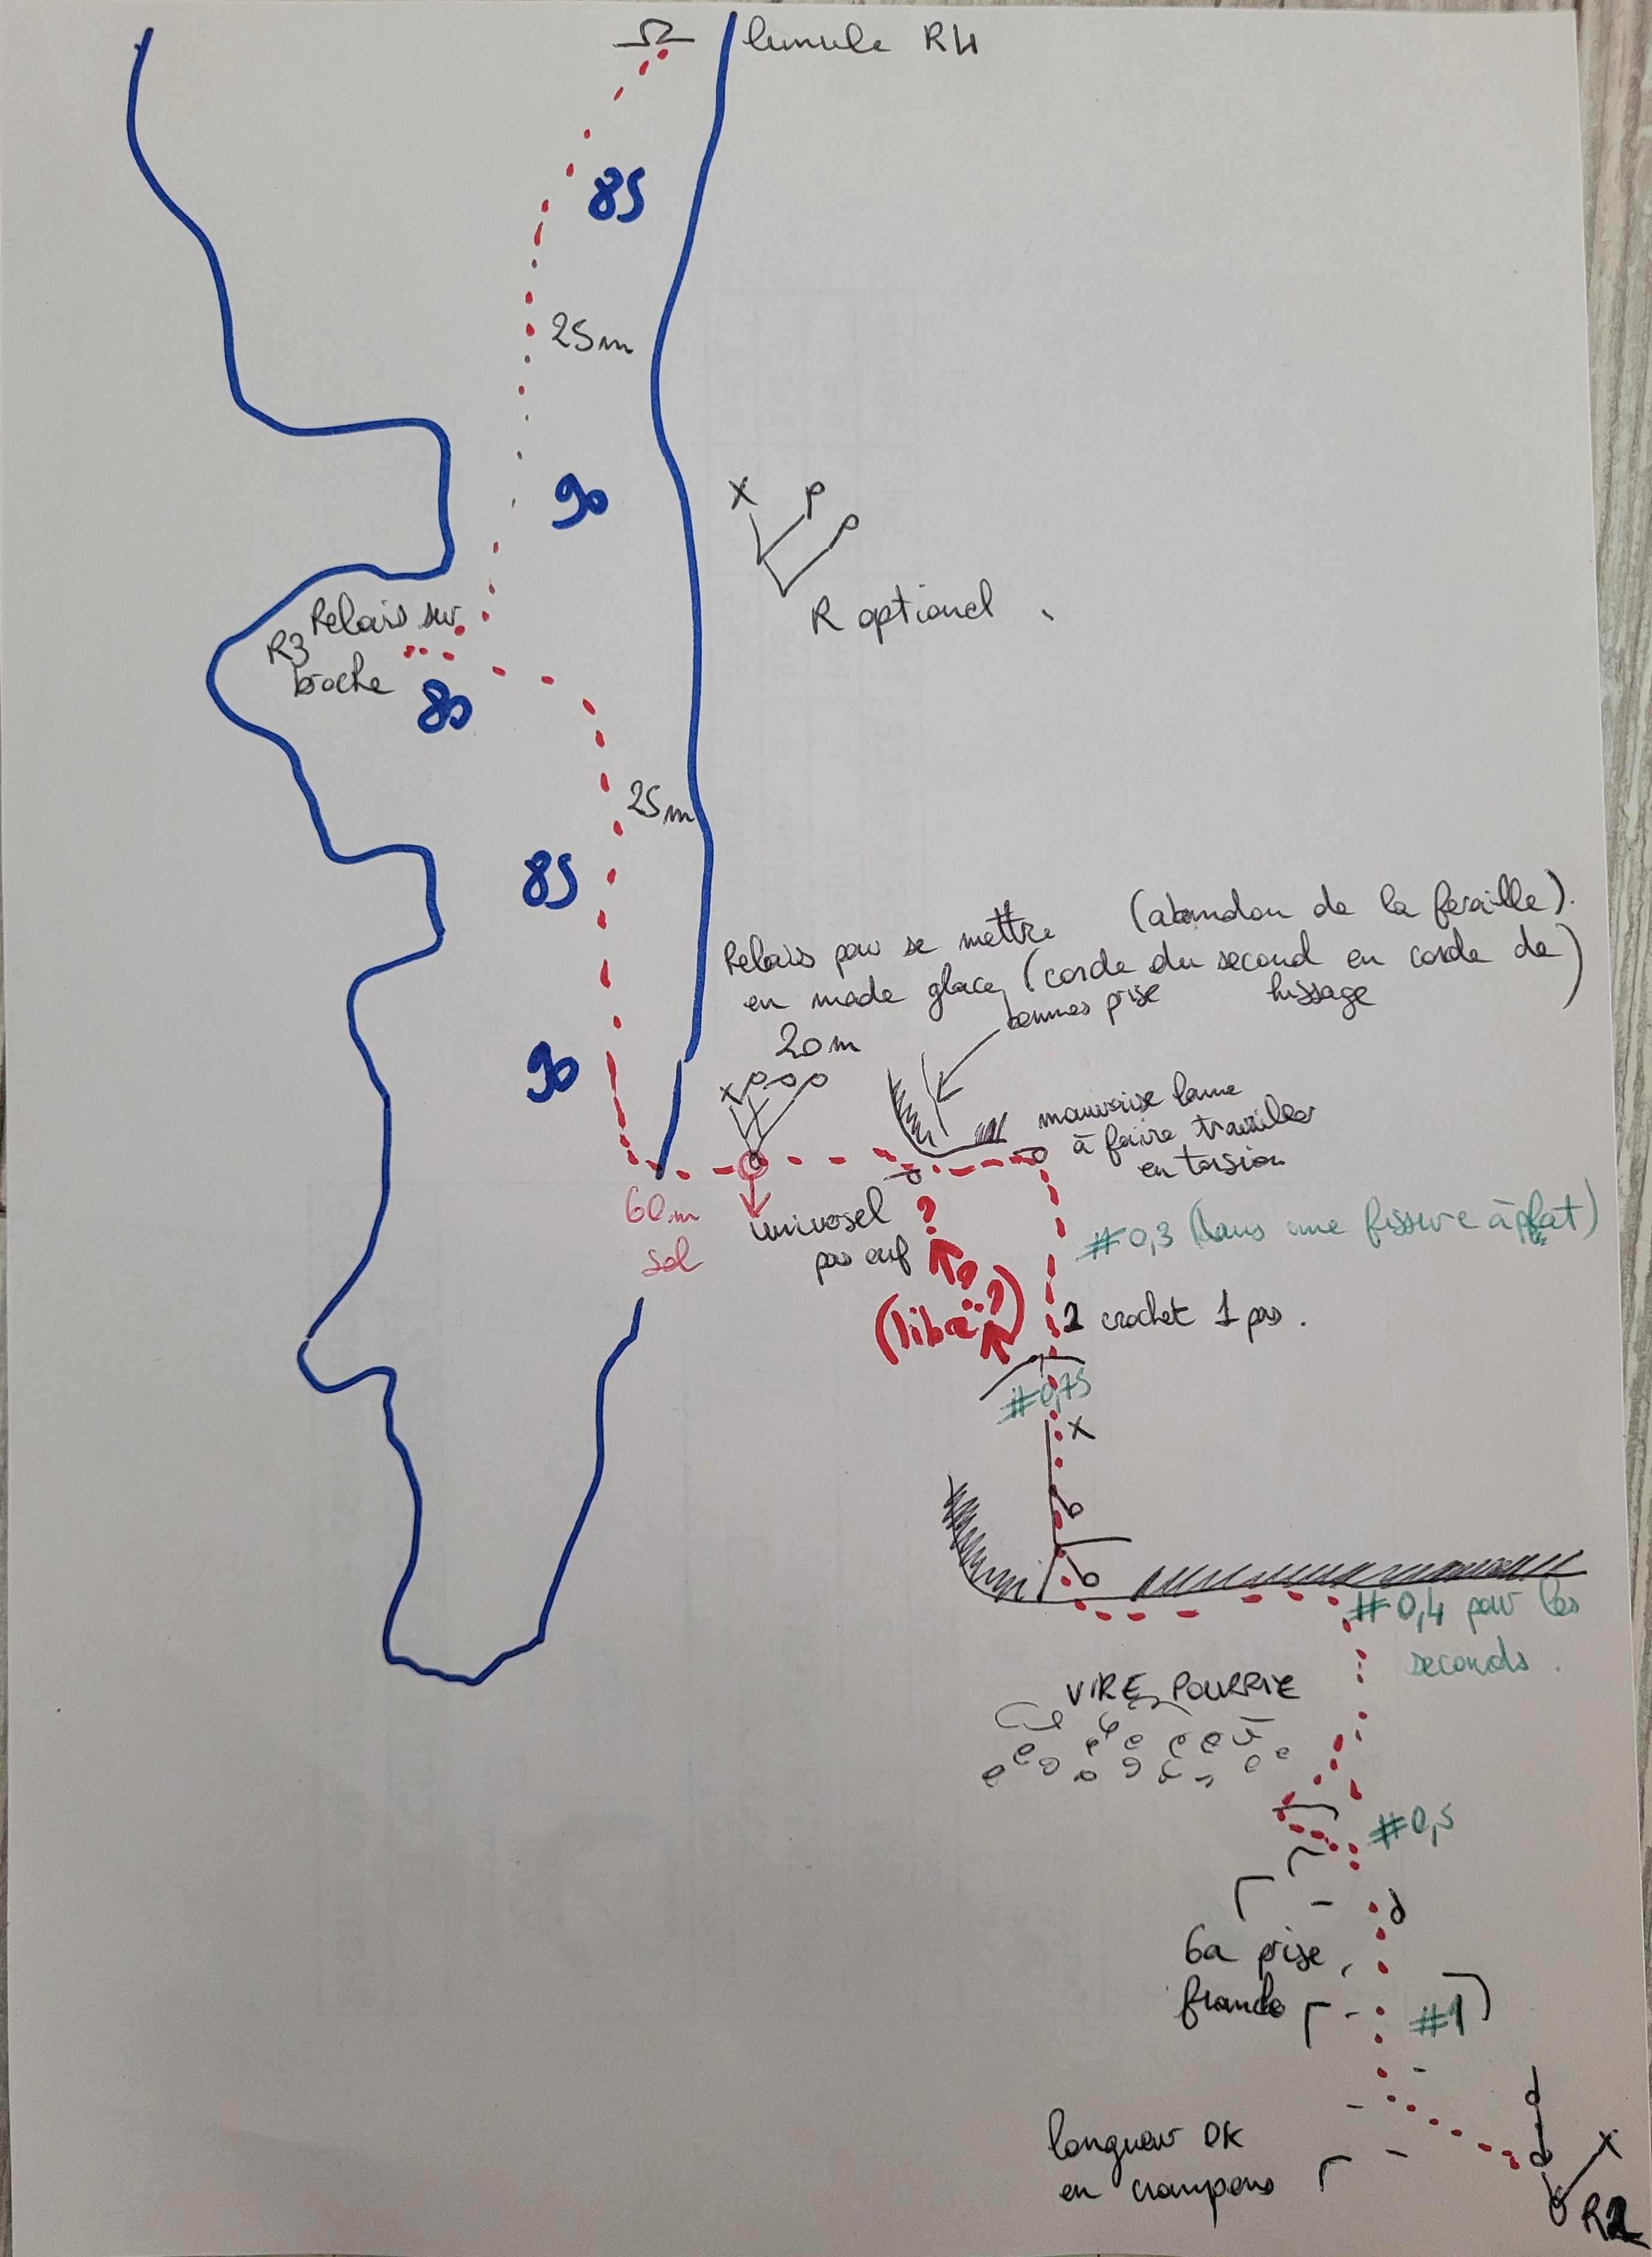 lunule R4
85
25m
90
X
R optionel
Relais sur
R3
broche
80
25m
85
Relais pour se mettre (abandon de la feraille).
en mode glace (corde du second en corde de
hissage)
bonnes prise
20m
90
X
mauvaise lame
à faire travailler
en torsion
60m
sol
univosel
pas ouf
?
#0,3 (dans une fissure à plat)
(libre ??)
1 crochet 1 pas.
#0,75
X
#0,4 pour les
seconds.
VIRE POURRIE
#0,5
6a prise
franche
#1
longueur OK
en crampons
X
R2